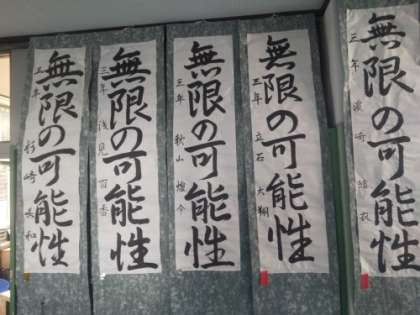 無限の可能性
三年 濱崎 結衣
無限の可能性
三年 立石 大翔
無限の可能性
三年 秋山 煌今
無限の可能性
三年 浅見 百香
無限の可能性
三年 杉崎